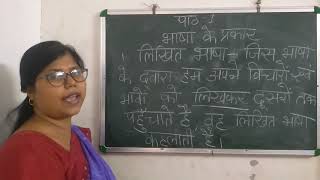 पाठ-1
भाषा के प्रकार
1. लिखित भाषा - जिस भाषा
के द्वारा हम अपने विचारों एवं
भावों को लिखकर दूसरों तक
पहुँचाते हैं, वह लिखित भाषा
कहलाती है।